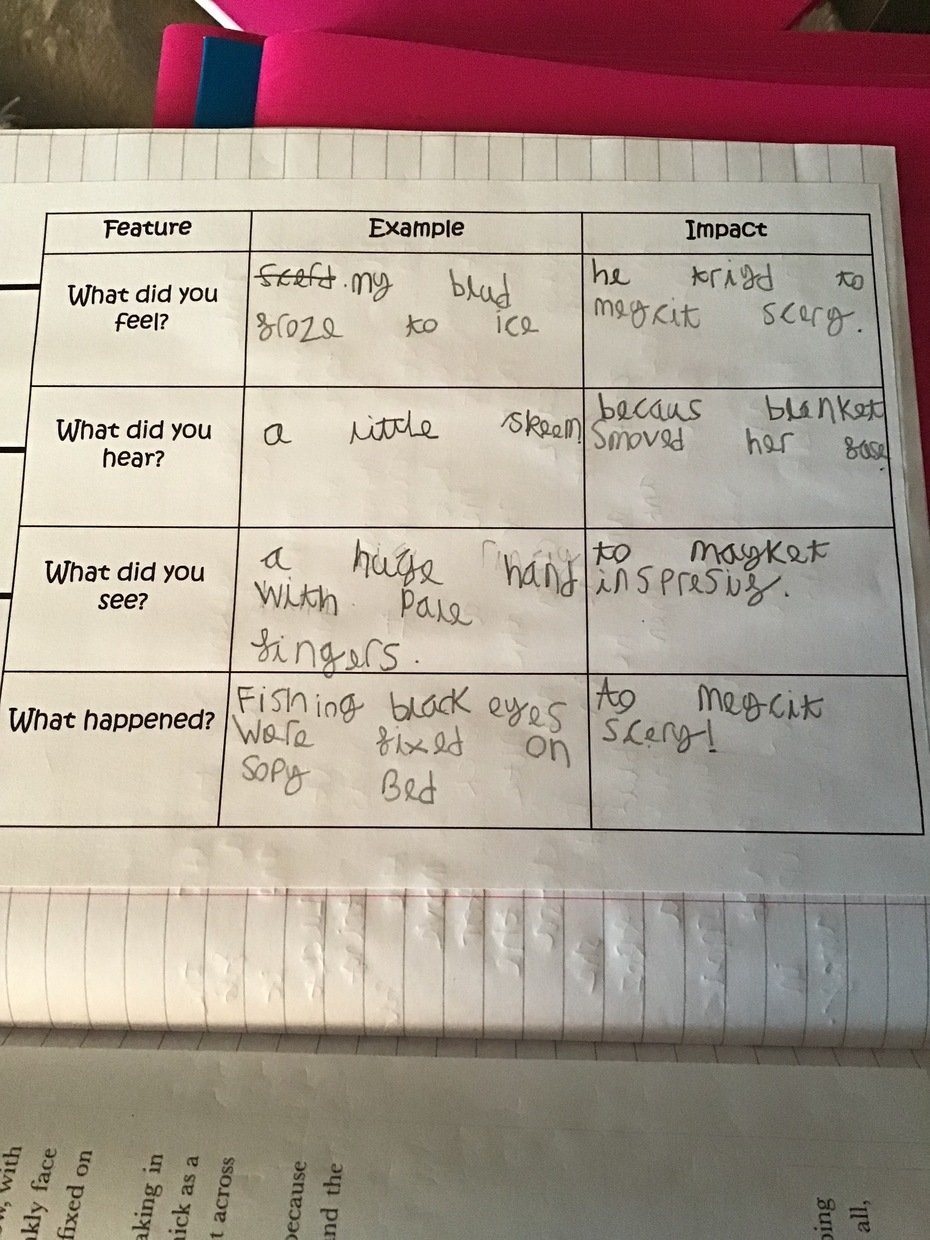 Feature Example Impact
What did you
feel?
my blud
froze to ice
he trigd to
megcit scerg.
What did you
hear?
a little skeem
becaus blanket
smoved her fase
What did you
see?
a huge hand
with pale
fingers.
to mayket
inspresiv.
What happened?
Fishing black eyes
Were fixed on
Sopy Bed
to megcit
scery!
w, with
akly face
fixed on
aking in
hick as a
t across
because
nd the
ping
all,